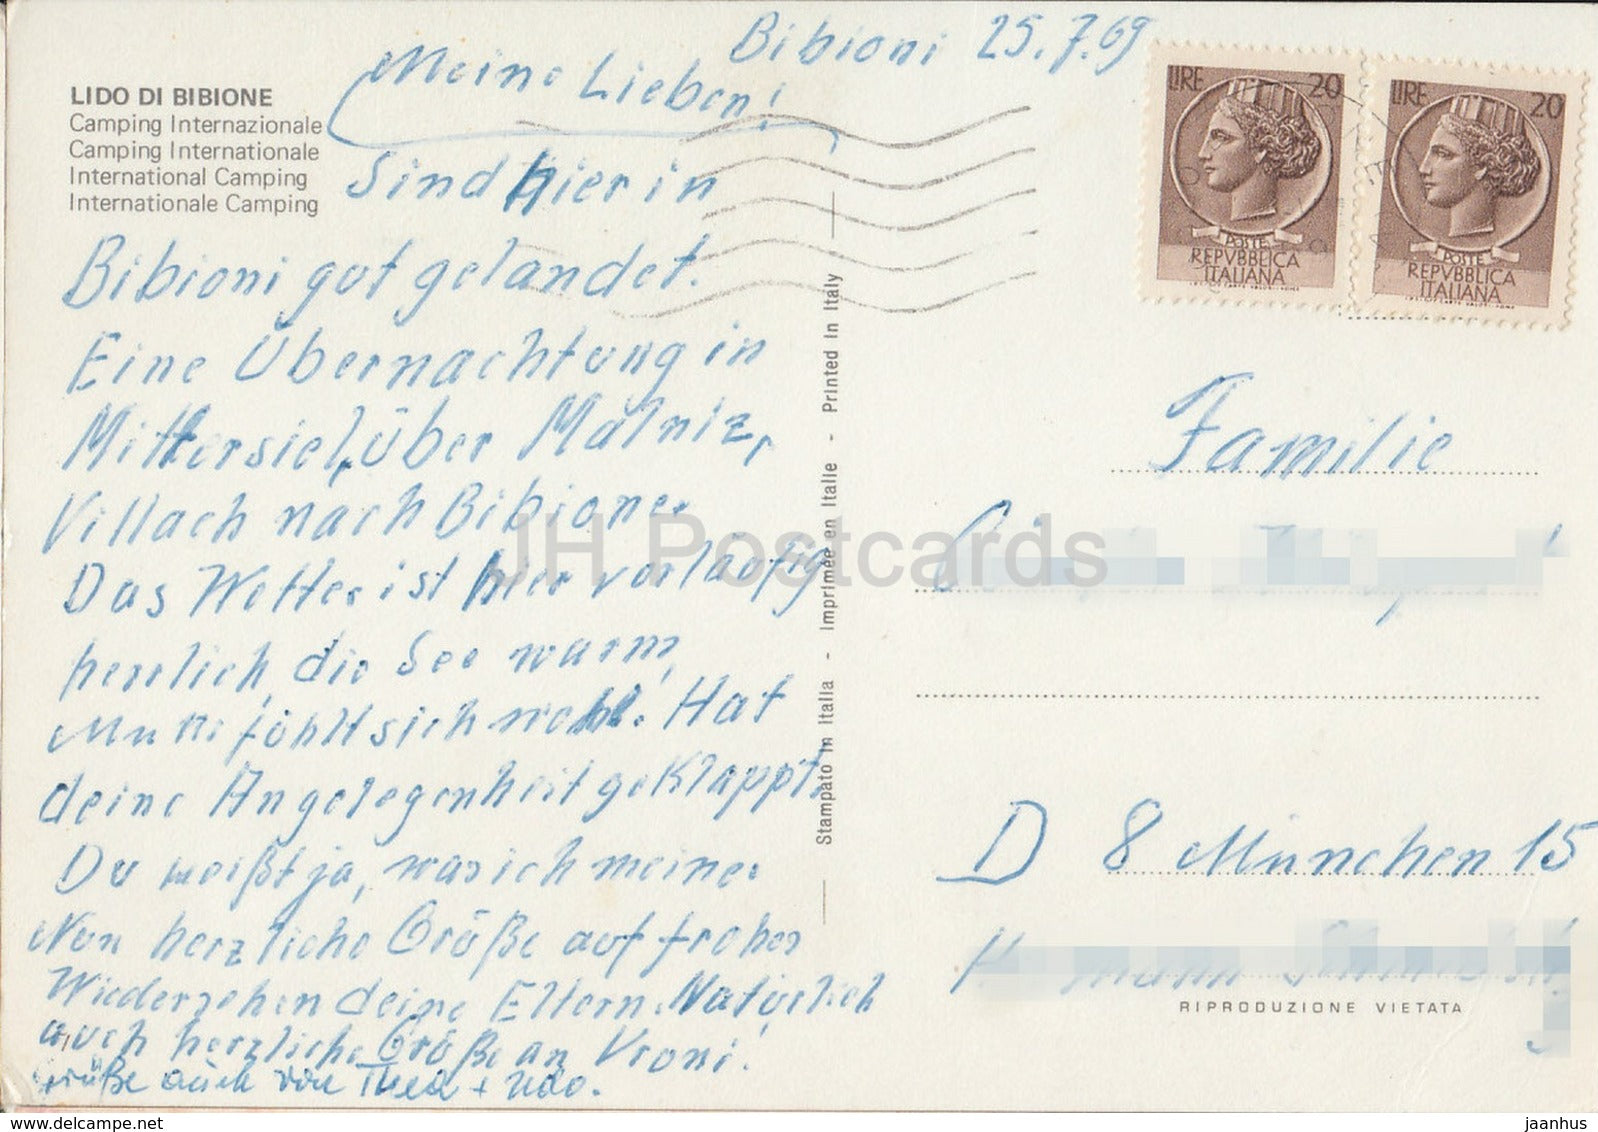 Bibioni 25.7.69
Meine Lieben!
LIDO DI BIBIONE
Camping Internazionale
Camping Internationale
International Camping
Internationale Camping
Sind hier in
Bibioni gut gelandet.
Eine Übernachtung in
Mittersiel, über Malniz,
Villach nach Bibione.
Das Wetter ist hier vorläufig
herrlich, die See warm,
Mutti fühlt sich wohl. Hat
deine Angelegenheit geklappt,
Du weißt ja, was ich meine.
Nun herzliche Grüße auf frohes
Wiedersehen deine Eltern. Natürlich
auch herzliche Grüße an Vroni!
Grüße auch von Thea + Udo.
Stampato in Italia - Imprimée en Italie - Printed in Italy
LIRE 20
POSTE
REPVBBLICA
ITALIANA
LIRE 20
POSTE
REPVBBLICA
ITALIANA
Familie
D 8 München 15
RIPRODUZIONE VIETATA
JH Postcards
www.delcampe.net
jaanhus